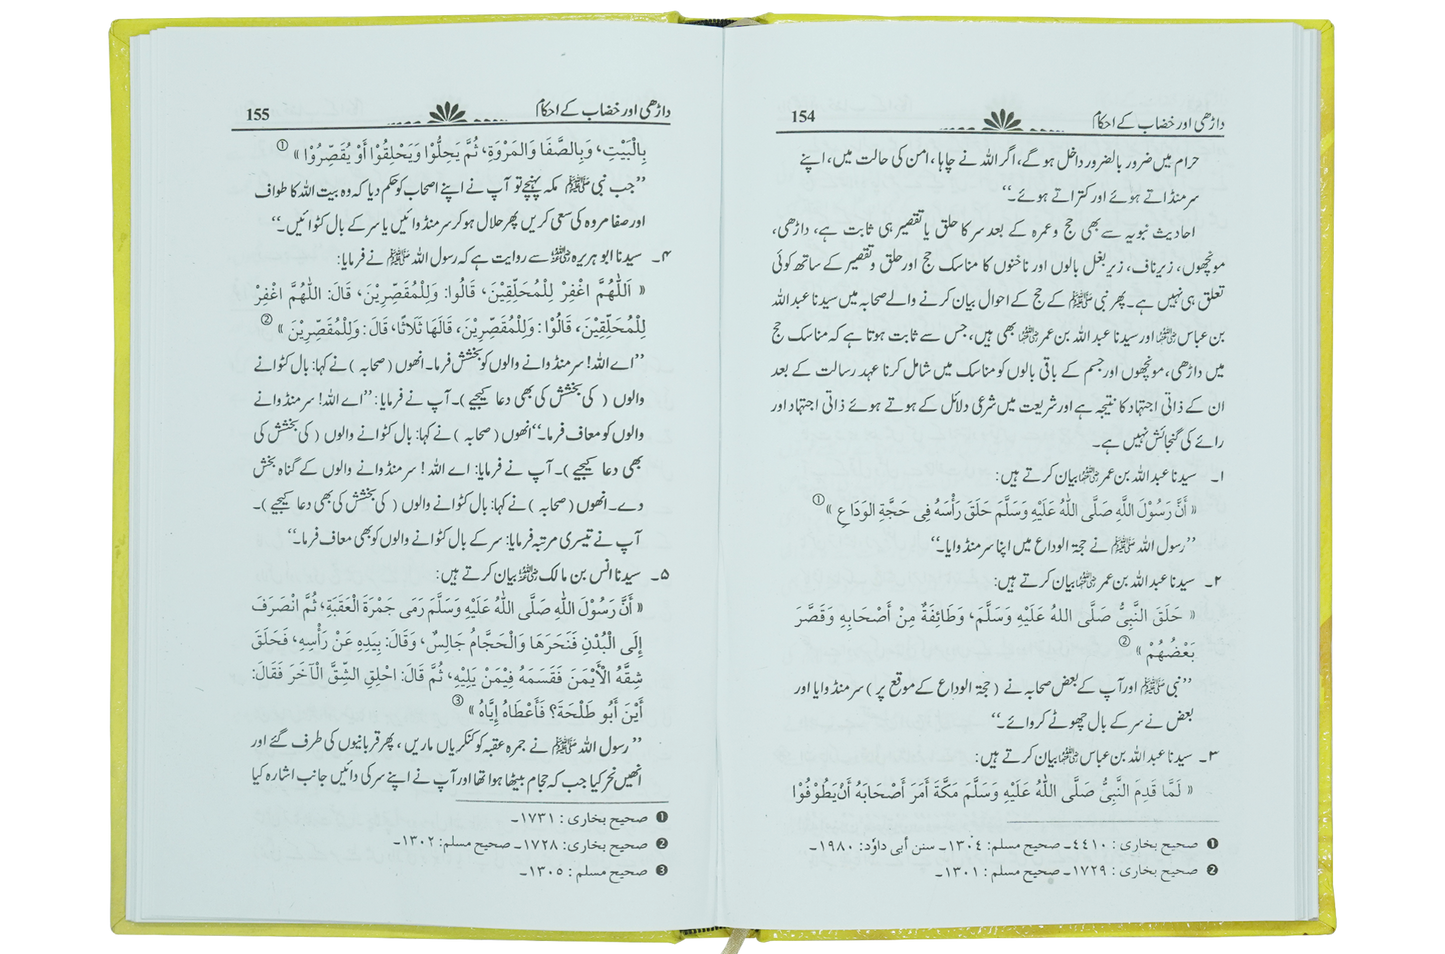 داڑھی اور خضاب کے احکام 154
حرام میں ضرور بالضرور داخل ہوگے، اگر اللہ نے چاہا، امن کی حالت میں، اپنے
سر منڈاتے ہوئے اور کتراتے ہوئے۔‘‘
احادیث نبویہ سے بھی حج وعمرہ کے بعد سر کا حلق یا تقصیر ہی ثابت ہے، داڑھی،
مونچھوں، زیرِ ناف، زیرِ بغل بالوں اور ناخنوں کا مناسک حج اور حلق وتقصیر کے ساتھ کوئی
تعلق ہی نہیں ہے۔ پھر نبی ﷺ کے حج کے احوال بیان کرنے والے صحابہ میں سیدنا عبداللہ
بن عباس رضی اللہ عنہما اور سیدنا عبداللہ بن عمر رضی اللہ عنہما بھی ہیں، جس سے ثابت ہوتا ہے کہ مناسک حج
میں داڑھی، مونچھوں اور جسم کے باقی بالوں کو مناسک میں شامل کرنا عہد رسالت کے بعد
ان کے ذاتی اجتہاد کا نتیجہ ہے اور شریعت میں شرعی دلائل کے ہوتے ہوئے ذاتی اجتہاد اور
رائے کی گنجائش نہیں ہے۔
۱۔ سیدنا عبداللہ بن عمر رضی اللہ عنہما بیان کرتے ہیں:
« أَنَّ رَسُوْلَ اللَّهِ صَلَّى اللّٰهُ عَلَيْهِ وَسَلَّمَ حَلَقَ رَأْسَهُ فِى حَجَّةِ الوَدَاعِ » ①
’’رسول اللہ ﷺ نے حجۃ الوداع میں اپنا سر منڈوایا۔‘‘
۲۔ سیدنا عبداللہ بن عمر رضی اللہ عنہما بیان کرتے ہیں:
« حَلَقَ النَّبِىُّ صَلَّى اللهُ عَلَيْهِ وَسَلَّمَ، وَطَائِفَةٌ مِنْ أَصْحَابِهِ وَقَصَّرَ
بَعْضُهُمْ » ②
’’نبی ﷺ اور آپ کے بعض صحابہ نے (حجۃ الوداع کے موقع پر) سر منڈوایا اور
بعض نے سر کے بال چھوٹے کروائے۔‘‘
۳۔ سیدنا عبداللہ بن عباس رضی اللہ عنہما بیان کرتے ہیں:
« لَمَّا قَدِمَ النَّبِىُّ صَلَّى اللّٰهُ عَلَيْهِ وَسَلَّمَ مَكَّةَ أَمَرَ أَصْحَابَهُ أَنْ يَطُوْفُوْا
❶ صحیح بخاری : ٤٤١٠۔ صحیح مسلم: ١٣٠٤۔ سنن أبی داوٗد: ١٩٨٠۔
❷ صحیح بخاری : ١٧٢٩۔ صحیح مسلم : ١٣٠١۔
داڑھی اور خضاب کے احکام 155
بِالْبَيْتِ، وَبِالصَّفَا وَالمَرْوَةِ، ثُمَّ يَحِلُّوْا وَيَحْلِقُوْا أَوْ يُقَصِّرُوْا » ①
’’جب نبی ﷺ مکہ پہنچے تو آپ نے اپنے اصحاب کو حکم دیا کہ وہ بیت اللہ کا طواف
اور صفا مروہ کی سعی کریں پھر حلال ہو کر سر منڈوائیں یا سر کے بال کٹوائیں۔‘‘
۴۔ سیدنا ابو ہریرہ رضی اللہ عنہ سے روایت ہے کہ رسول اللہ ﷺ نے فرمایا:
« اَللّٰهُمَّ اغْفِرْ لِلْمُحَلِّقِيْنَ، قَالُوا: وَلِلْمُقَصِّرِيْنَ، قَالَ: اللّٰهُمَّ اغْفِرْ
لِلْمُحَلِّقِيْنَ، قَالُوْا : وَلِلْمُقَصِّرِيْنَ، قَالَهَا ثَلَاثًا، قَالَ: وَلِلْمُقَصِّرِيْنَ » ②
’’اے اللہ! سر منڈوانے والوں کو بخشش فرما۔ انھوں (صحابہ) نے کہا: بال کٹوانے
والوں ( کی بخشش کی بھی دعا کیجیے)۔ آپ نے فرمایا: ’’اے اللہ! سر منڈوانے
والوں کو معاف فرما۔‘‘ انھوں (صحابہ) نے کہا: بال کٹوانے والوں ( کی بخشش کی
بھی دعا کیجیے)۔ آپ نے فرمایا: اے اللہ ! سر منڈوانے والوں کے گناہ بخش
دے۔ انھوں (صحابہ) نے کہا: بال کٹوانے والوں ( کی بخشش کی بھی دعا کیجیے)۔
آپ نے تیسری مرتبہ فرمایا: سر کے بال کٹوانے والوں کو بھی معاف فرما۔‘‘
۵۔ سیدنا انس بن مالک رضی اللہ عنہ بیان کرتے ہیں:
« أَنَّ رَسُوْلَ اللّٰهِ صَلَّى اللّٰهُ عَلَيْهِ وَسَلَّمَ رَمَى جَمْرَةَ الْعَقَبَةِ، ثُمَّ انْصَرَفَ
إِلَى الْبُدْنِ فَنَحَرَهَا وَالْحَجَّامُ جَالِسٌ، وَقَالَ: بِيَدِهِ عَنْ رَأْسِهِ، فَحَلَقَ
شِقَّهُ الْأَيْمَنَ فَقَسَمَهُ فِيْمَنْ يَلِيْهِ، ثُمَّ قَالَ: احْلِقِ الشِّقَّ الْآخَرَ فَقَالَ:
أَيْنَ أَبُو طَلْحَةَ؟ فَأَعْطَاهُ إِيَّاهُ » ③
’’ رسول اللہ ﷺ نے جمرہ عقبہ کو کنکریاں ماریں، پھر قربانیوں کی طرف گئے اور
انھیں نحر کیا جب کہ حجام بیٹھا ہوا تھا اور آپ نے اپنے سر کی دائیں جانب اشارہ کیا
❶ صحیح بخاری : ١٧٣١۔
❷ صحیح بخاری: ١٧٢٨۔ صحیح مسلم: ١٣٠٢۔
❸ صحیح مسلم : ١٣٠٥۔